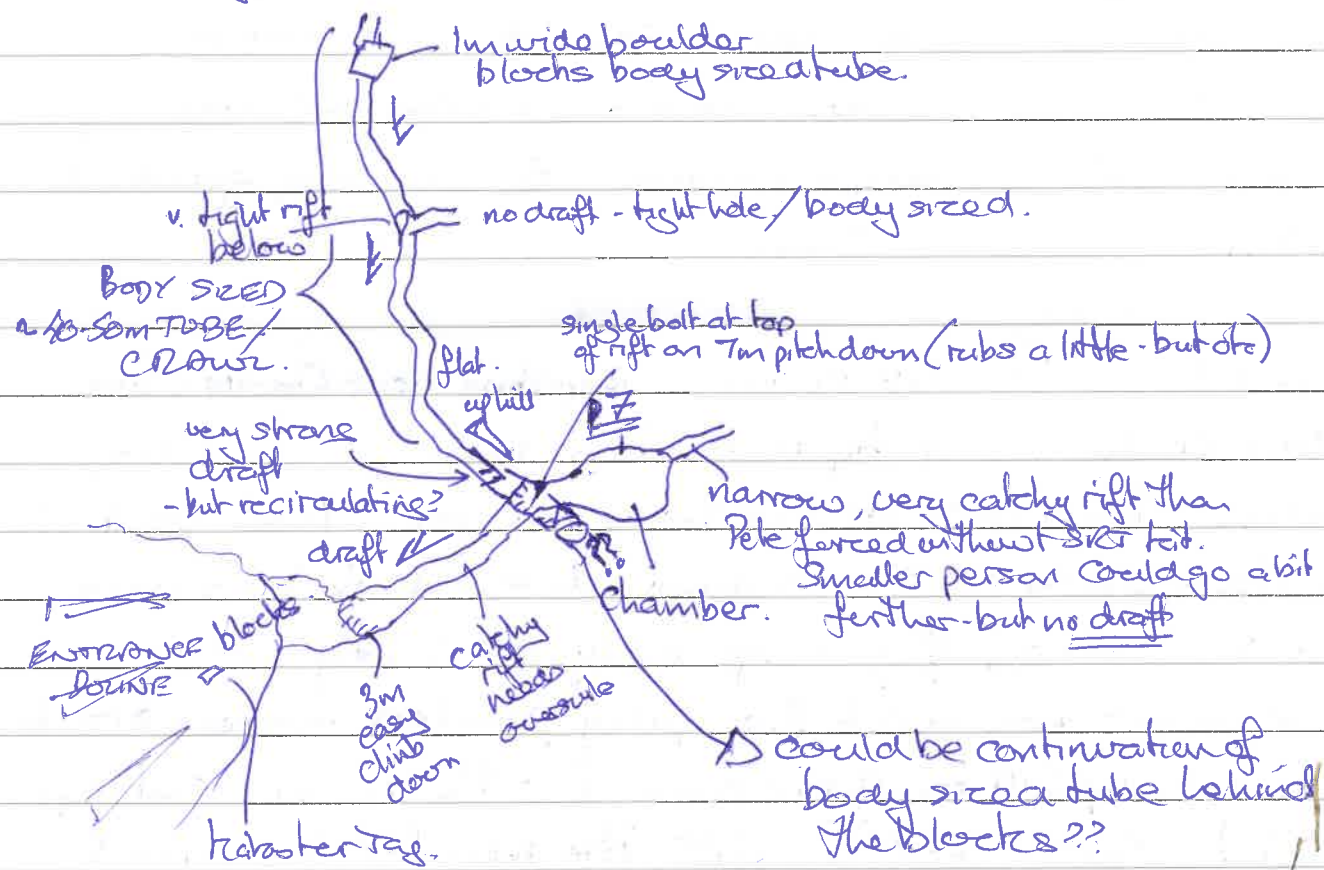 1m wide boulder
blocks body sized tube.
v. tight rift
below
no draft - tight hole / body sized.
BODY SIZED
~ 40-50m TUBE /
CRAWL.
single bolt at top
of rift on 7m pitch down (rubs a little - but ok)
flat.
uphill
P7
very strong
draft
- but recirculating?
narrow, very catchy rift than
Pete forced without SRT kit.
Smaller person could go a bit
further - but no draft
draft
??
Chamber.
blocks
ENTRANCE
DOLINE
catchy
rift
needs
oversuit
3m
easy
climb
down
could be continuation of
body sized tube behind
the blocks??
Tag.